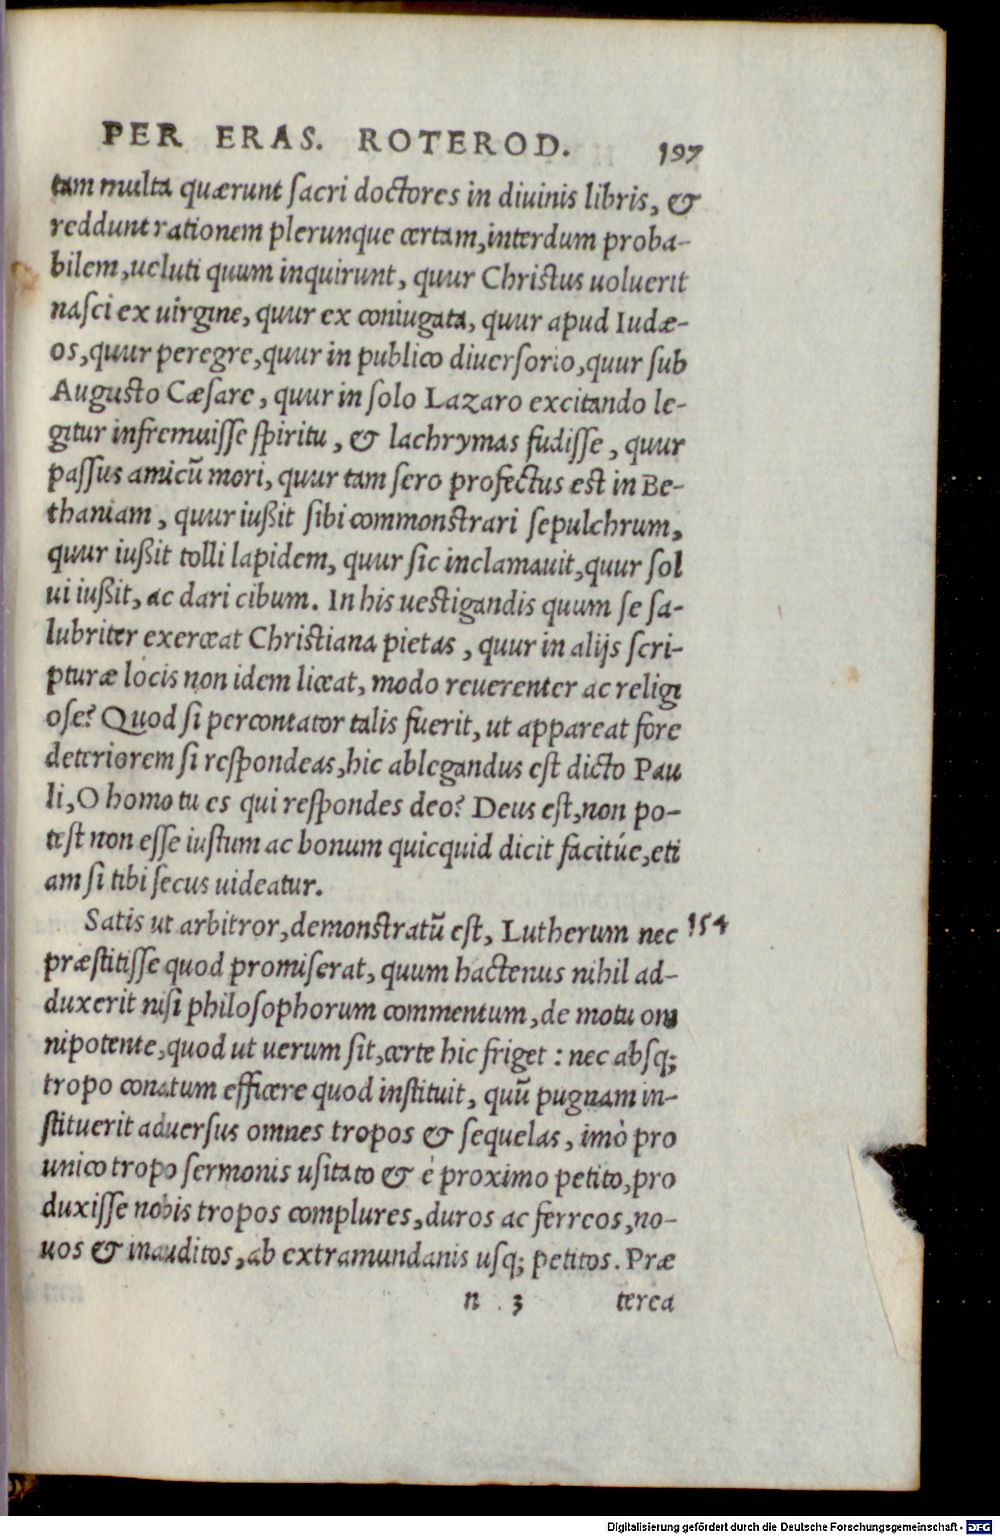 PER ERAS. ROTEROD. 197
tam multa quærunt sacri doctores in diuinis libris, &
reddunt rationem plerunque certam, interdum proba-
bilem, ueluti quum inquirunt, quur Christus uoluerit
nasci ex uirgine, quur ex coniugata, quur apud Iudæ-
os, quur peregre, quur in publico diuersorio, quur sub
Augusto Cæsare, quur in solo Lazaro excitando le-
gitur infremuisse spiritu, & lachrymas fudisse, quur
passus amicũ mori, quur tam sero profectus est in Be-
thaniam, quur iußit sibi commonstrari sepulchrum,
quur iußit tolli lapidem, quur sic inclamauit, quur sol
ui iußit, ac dari cibum. In his uestigandis quum se sa-
lubriter exerceat Christiana pietas, quur in alijs scri-
pturæ locis non idem liceat, modo reuerenter ac religi
ose? Quod si percontator talis fuerit, ut appareat fore
deteriorem si respondeas, hic ablegandus est dicto Pau
li, O homo tu es qui respondes deo? Deus est, non po-
test non esse iustum ac bonum quicquid dicit facitúe, eti
am si tibi secus uideatur.
Satis ut arbitror, demonstratũ est, Lutherum nec 154
præstitisse quod promiserat, quum hactenus nihil ad-
duxerit nisi philosophorum commentum, de motu om
nipotente, quod ut uerum sit, certe hic friget: nec absq;
tropo conatum efficere quod instituit, quũ pugnam in-
stituerit aduersus omnes tropos & sequelas, imò pro
unico tropo sermonis usitato & è proximo petito, pro
duxisse nobis tropos complures, duros ac ferreos, no-
uos & inauditos, ab extramundanis usq; petitos. Præ
n 3 terea
Digitalisierung gefördert durch die Deutsche Forschungsgemeinschaft - DFG